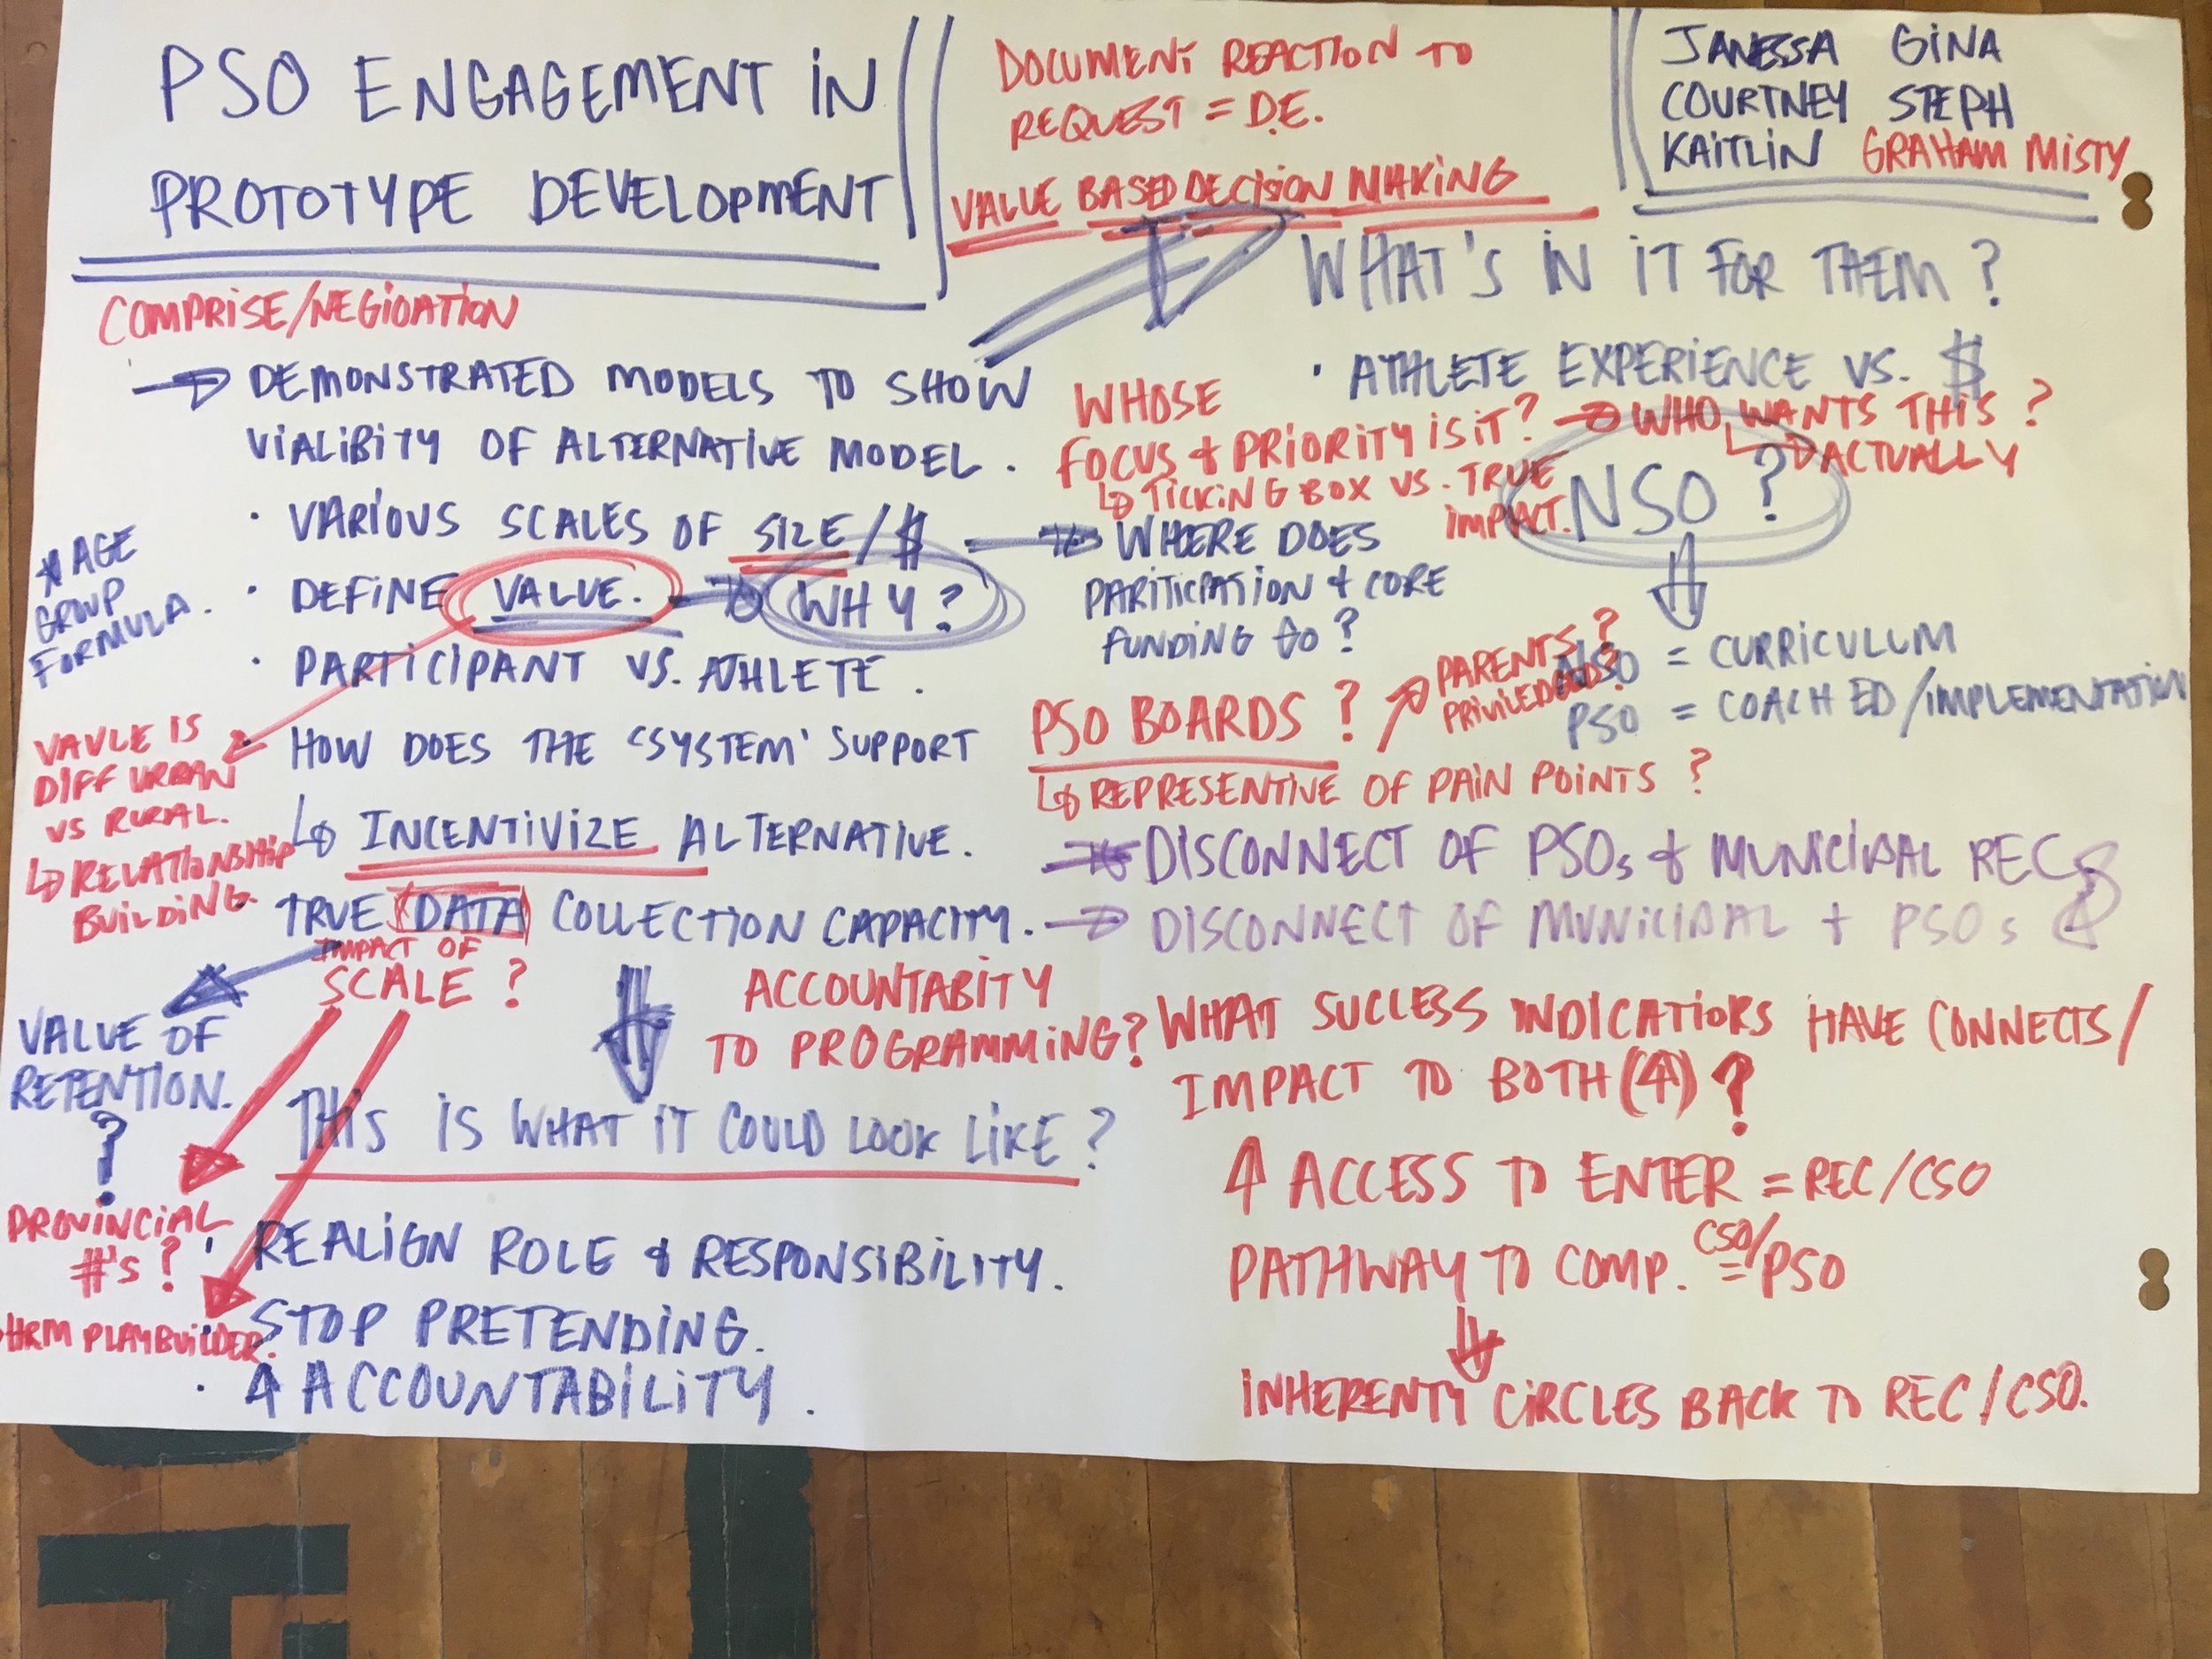 PSO ENGAGEMENT IN
PROTOTYPE DEVELOPMENT
DOCUMENT REACTION TO
REQUEST = D.E.
VALUE BASED DECISION MAKING
JANESSA GINA
COURTNEY STEPH
KAITLIN GRAHAM MISTY
COMPRISE/NEGIOATION
→ DEMONSTRATED MODELS TO SHOW
VIALIBITY OF ALTERNATIVE MODEL.
· VARIOUS SCALES OF SIZE/$
· DEFINE VALUE. → WHY?
· PARTICIPANT VS. ATHLETE.
· HOW DOES THE 'SYSTEM' SUPPORT
↳ INCENTIVIZE ALTERNATIVE.
TRUE (DATA) COLLECTION CAPACITY.
* AGE
GROUP
FORMULA.
VAVLE IS
DIFF URBAN
VS RURAL.
↳ RELATIONSHIP
BUILDING.
IMPACT OF
SCALE?
VALUE OF
RETENTION.
?
PROVINCIAL
#'s?
HRM PLAYBUILDER.
ACCOUNTABITY
TO PROGRAMMING?
THIS IS WHAT IT COULD LOOK LIKE?
· REALIGN ROLE & RESPONSIBILITY.
· STOP PRETENDING.
· ↑ ACCOUNTABILITY.
WHAT'S IN IT FOR THEM?
· ATHLETE EXPERIENCE VS. $
WHOSE
FOCUS & PRIORITY IS IT? → WHO WANTS THIS?
↳ ACTUALLY
↳ TICKING BOX VS. TRUE
IMPACT.
NSO?
→ WHERE DOES
PARITICPATION & CORE
FUNDING GO?
NSO = CURRICULUM
PSO = COACH ED/IMPLEMENTATION
PSO BOARDS? → PARENTS?
PRIVILEDGED?
↳ REPRESENTIVE OF PAIN POINTS?
→ DISCONNECT OF PSOs & MUNICIPAL REC
→ DISCONNECT OF MUNICIPAL + PSOs
WHAT SUCCESS INDICATIORS HAVE CONNECTS/
IMPACT TO BOTH (↑)?
↑ ACCESS TO ENTER = REC/CSO
PATHWAY TO COMP. = CSO/PSO
↓
INHERENTY CIRCLES BACK TO REC/CSO.